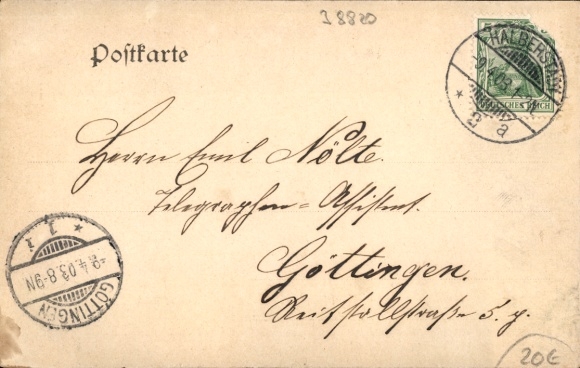 J 8820
Postkarte
HALBERSTADT
DEUTSCHES REICH
a
Herrn Emil Nölte.
Telegraphen=Assistent.
Göttingen.
Reitstallstraße 5. p.
GÖTTINGEN
9.4.03.8-9N
20€